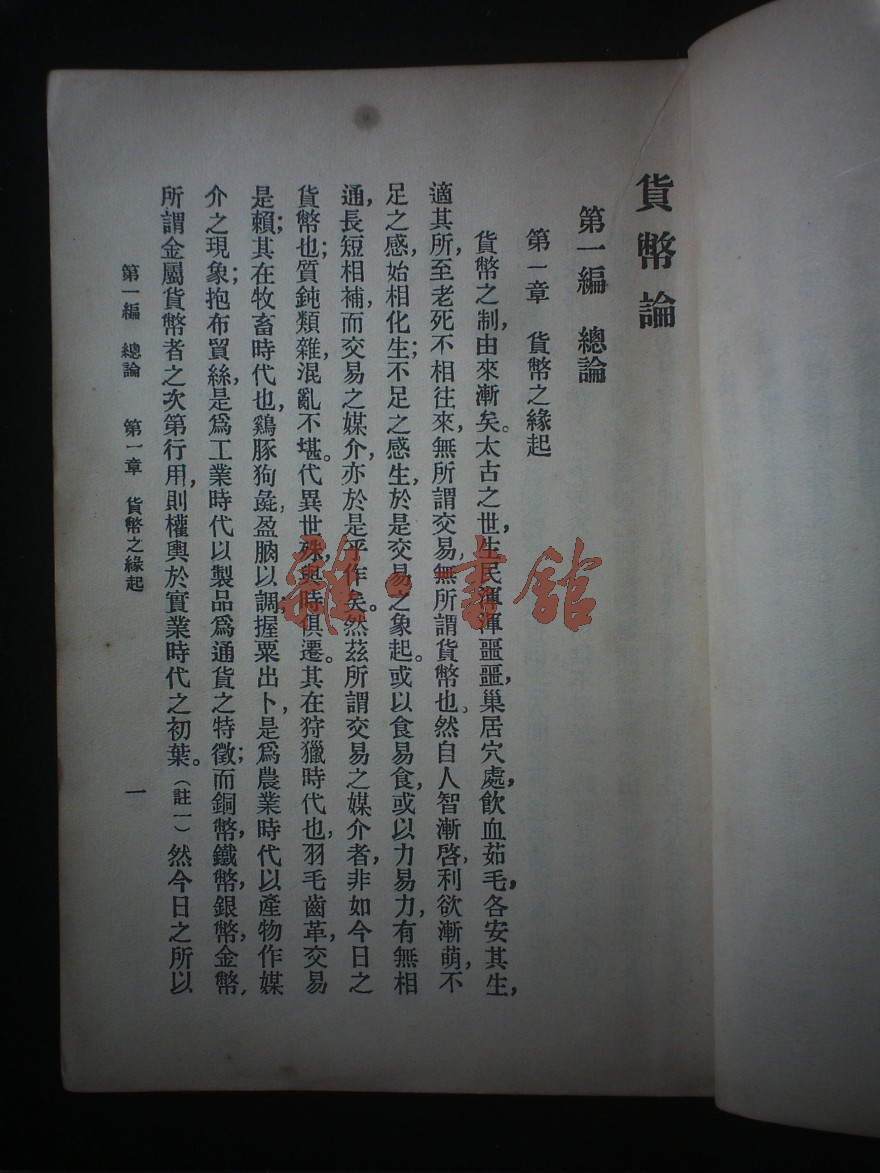 貨幣論
第一編　總論
第一章　貨幣之緣起
貨幣之制，由來漸矣。太古之世，生民渾渾噩噩，巢居穴處，飲血茹毛，各安其生，
適其所，至老死不相往來，無所謂交易，無所謂貨幣也。然自人智漸啓，利欲漸萌，不
足之感，始相化生；不足之感生，於是交易之象起。或以食易食，或以力易力，有無相
通，長短相補，而交易之媒介，亦於是乎作矣。然茲所謂交易之媒介者，非如今日之
貨幣也；質鈍類雜，混亂不堪。代異世殊，與時俱遷。其在狩獵時代也，羽毛齒革，交易
是賴；其在牧畜時代也，鷄豚狗彘，盈朒以調；握粟出卜，是爲農業時代以產物作媒
介之現象；抱布貿絲，是爲工業時代以製品爲通貨之特徵；而銅幣，鐵幣，銀幣，金幣，
所謂金屬貨幣者之次第行用，則權輿於實業時代之初葉。（註一）然今日之所以
第一編　總論　第一章　貨幣之緣起　一
雜·書館